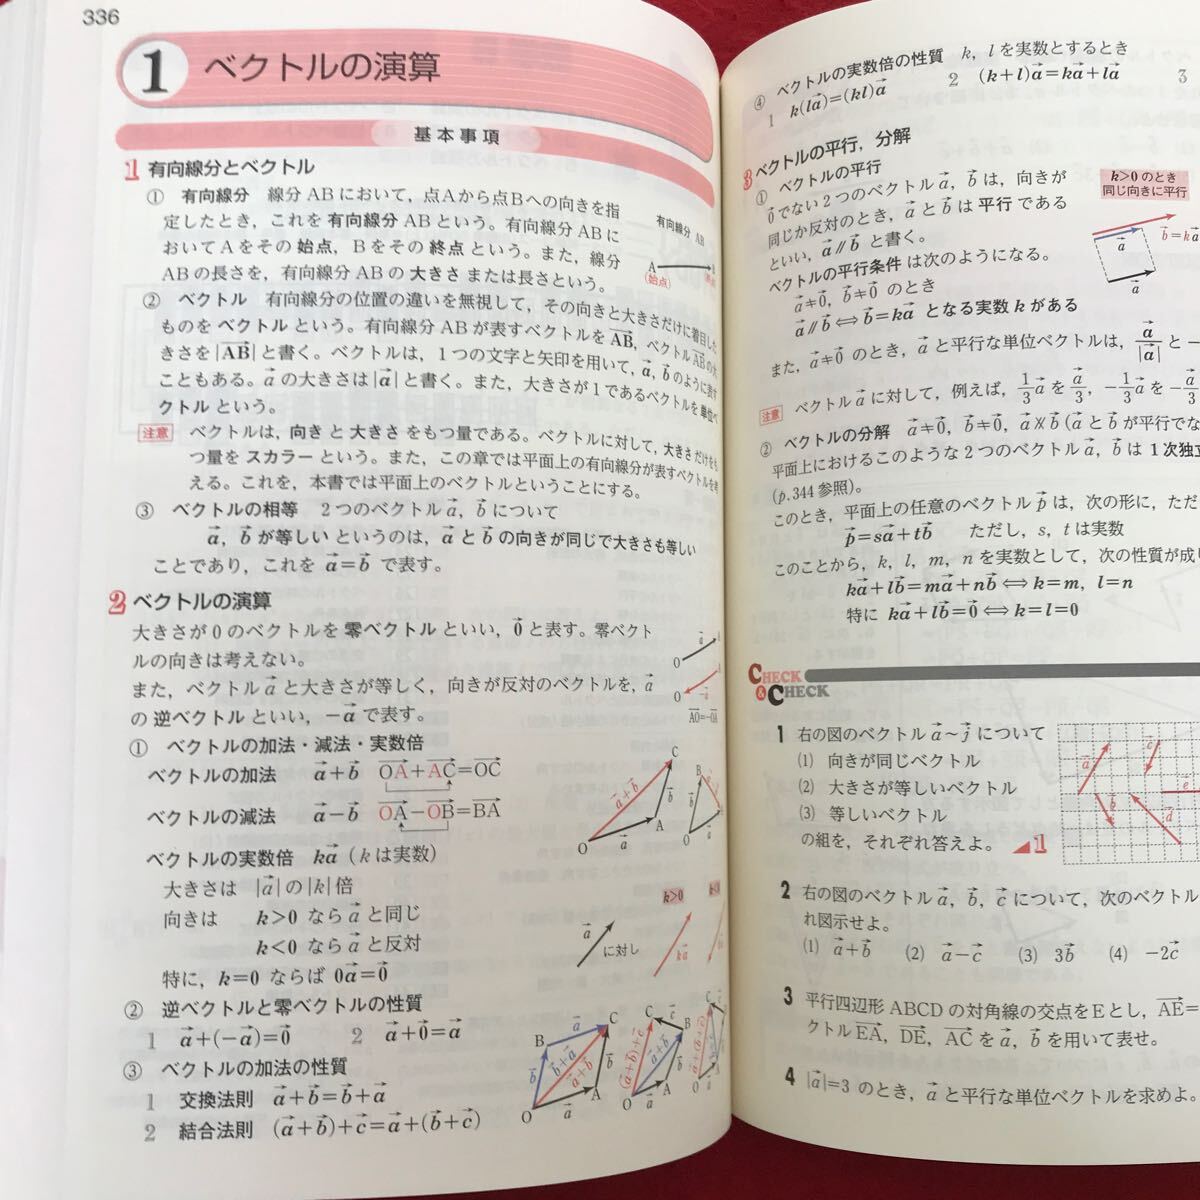 336
1 ベクトルの演算
基本事項
1 有向線分とベクトル
① 有向線分 線分ABにおいて，点Aから点Bへの向きを指
定したとき，これを有向線分ABという。有向線分ABに
おいてAをその始点，Bをその終点という。また，線分
ABの長さを，有向線分ABの大きさまたは長さという。
有向線分 AB
A
(始点)
② ベクトル 有向線分の位置の違いを無視して，その向きと大きさだけに着目した
ものをベクトルという。有向線分ABが表すベクトルをAB→，ベクトルAB→の大
きさを|AB→|と書く。ベクトルは，1つの文字と矢印を用いて，a→，b→のように表す
こともある。a→の大きさは|a→|と書く。また，大きさが1であるベクトルを単位ベ
クトルという。
注意 ベクトルは，向きと大きさをもつ量である。ベクトルに対して，大きさだけをも
つ量をスカラーという。また，この章では平面上の有向線分が表すベクトルを考
える。これを，本書では平面上のベクトルということにする。
③ ベクトルの相等 2つのベクトルa→，b→について
a→，b→が等しいというのは，a→とb→の向きが同じで大きさも等しい
ことであり，これをa→=b→で表す。
2 ベクトルの演算
大きさが0のベクトルを零ベクトルといい，0→と表す。零ベクト
ルの向きは考えない。
また，ベクトルa→と大きさが等しく，向きが反対のベクトルを，a→
の逆ベクトルといい，−a→で表す。
AO→=−OA→
① ベクトルの加法・減法・実数倍
ベクトルの加法 a→+b→ OA→+AC→=OC→
ベクトルの減法 a→−b→ OA→−OB→=BA→
ベクトルの実数倍 ka→ (kは実数)
大きさは |a→|の|k|倍
向きは k>0 ならa→と同じ
k<0 ならa→と反対
特に，k=0 ならば 0a→=0→
k>0
a→ に対し ka→
② 逆ベクトルと零ベクトルの性質
1 a→+(−a→)=0→ 2 a→+0→=a→
③ ベクトルの加法の性質
1 交換法則 a→+b→=b→+a→
2 結合法則 (a→+b→)+c→=a→+(b→+c→)
④ ベクトルの実数倍の性質 k，lを実数とするとき
1 k(la→)=(kl)a→ 2 (k+l)a→=ka→+la→ 3
3 ベクトルの平行，分解
① ベクトルの平行
0→でない2つのベクトルa→，b→は，向きが
同じか反対のとき，a→とb→は平行である
といい，a→∥b→ と書く。
k>0のとき
同じ向きに平行
b→=ka→
a→
ベクトルの平行条件は次のようになる。
a→≠0→，b→≠0→ のとき
a→∥b→⟺b→=ka→ となる実数kがある
また，a→≠0→ のとき，a→と平行な単位ベクトルは，a→/|a→| と −
注意 ベクトルa→に対して，例えば，1/3a→をa→/3，−1/3a→を−a→/3
② ベクトルの分解 a→≠0→，b→≠0→，a→∦b→ (a→とb→が平行でな
平面上におけるこのような2つのベクトルa→，b→は1次独立
(p.344参照)。
このとき，平面上の任意のベクトルp→は，次の形に，ただ
p→=sa→+tb→ ただし，s，tは実数
このことから，k，l，m，nを実数として，次の性質が成り
ka→+lb→=ma→+nb→⟺k=m，l=n
特に ka→+lb→=0→⟺k=l=0
CHECK & CHECK
1 右の図のベクトルa→〜j→について
(1) 向きが同じベクトル
(2) 大きさが等しいベクトル
(3) 等しいベクトル
の組を，それぞれ答えよ。 1
2 右の図のベクトルa→，b→，c→について，次のベクトル
れ図示せよ。
(1) a→+b→ (2) a→−c→ (3) 3b→ (4) −2c→
3 平行四辺形ABCDの対角線の交点をEとし，AE→=
クトルEA→，DE→，AC→をa→，b→を用いて表せ。
4 |a→|=3 のとき，a→と平行な単位ベクトルを求めよ。